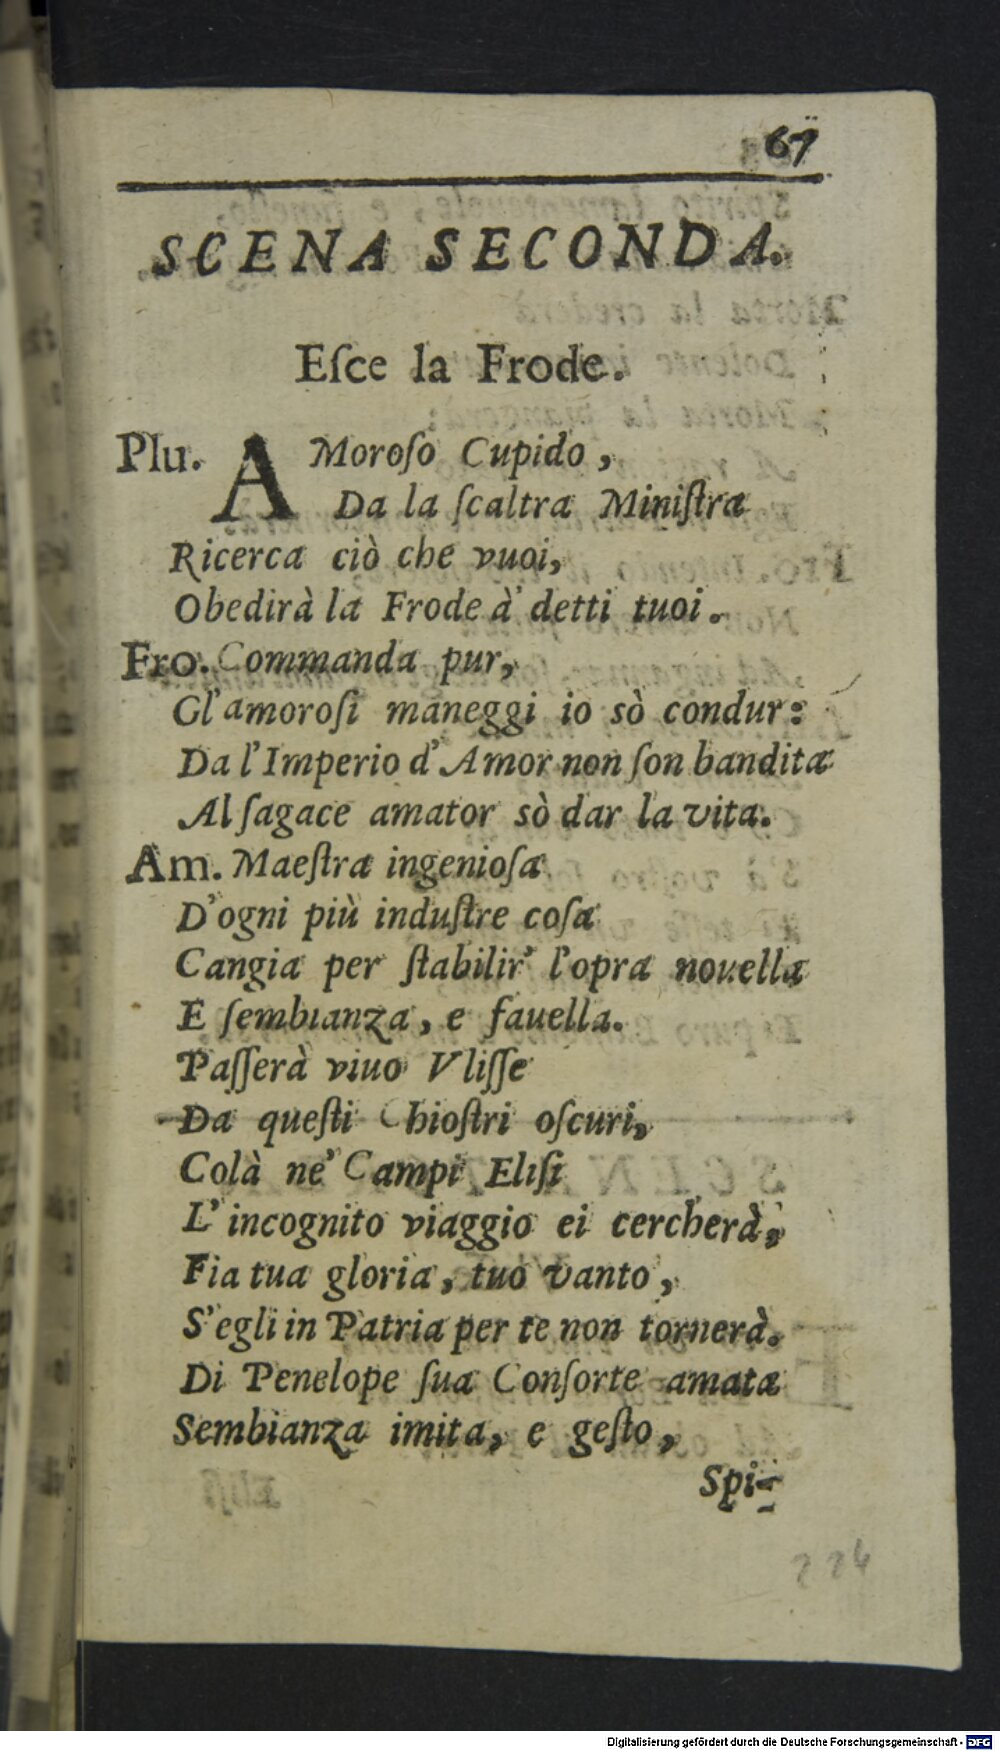 67
SCENA SECONDA.
Eſce la Frode.
Plu. AMoroſo Cupido,
Da la ſcaltra Miniſtra
Ricerca ciò che vuoi,
Obedirà la Frode à detti tuoi.
Fro. Commanda pur,
Gl'amoroſi maneggi io sò condur:
Da l'Imperio d'Amor non ſon bandita
Al ſagace amator sò dar la vita.
Am. Maeſtra ingenioſa
D'ogni più induſtre coſa
Cangia per ſtabilir' l'opra nouella
E ſembianza, e fauella.
Paſſerà viuo Vliſſe
Da queſti Chioſtri oſcuri,
Colà ne' Campi Eliſi
L'incognito viaggio ei cercherà,
Fia tua gloria, tuo vanto,
S'egli in Patria per te non tornerà.
Di Penelope ſua Conſorte amata
Sembianza imita, e geſto,
Spi-
224
Digitalisierung gefördert durch die Deutsche Forschungsgemeinschaft - DFG